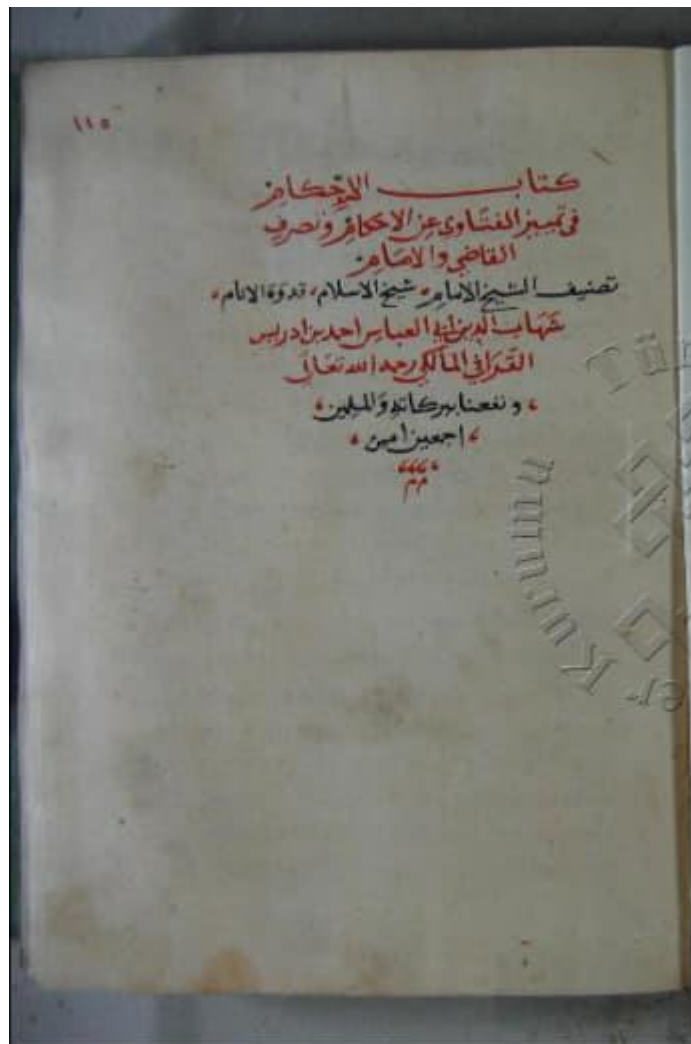 ١١٥
كتاب الإحكام
في تمييز الفتاوى عن الاحكام وتصرف
القاضي والامام
تصنيف الشيخ الامام، شيخ الاسلام، قدوة الانام،
شهاب الدين ابي العباس احمد بن ادريس
القرافي المالكي رحمه الله تعالى
، ونفعنا ببركاته والمسلمين،
، اجمعين امين،